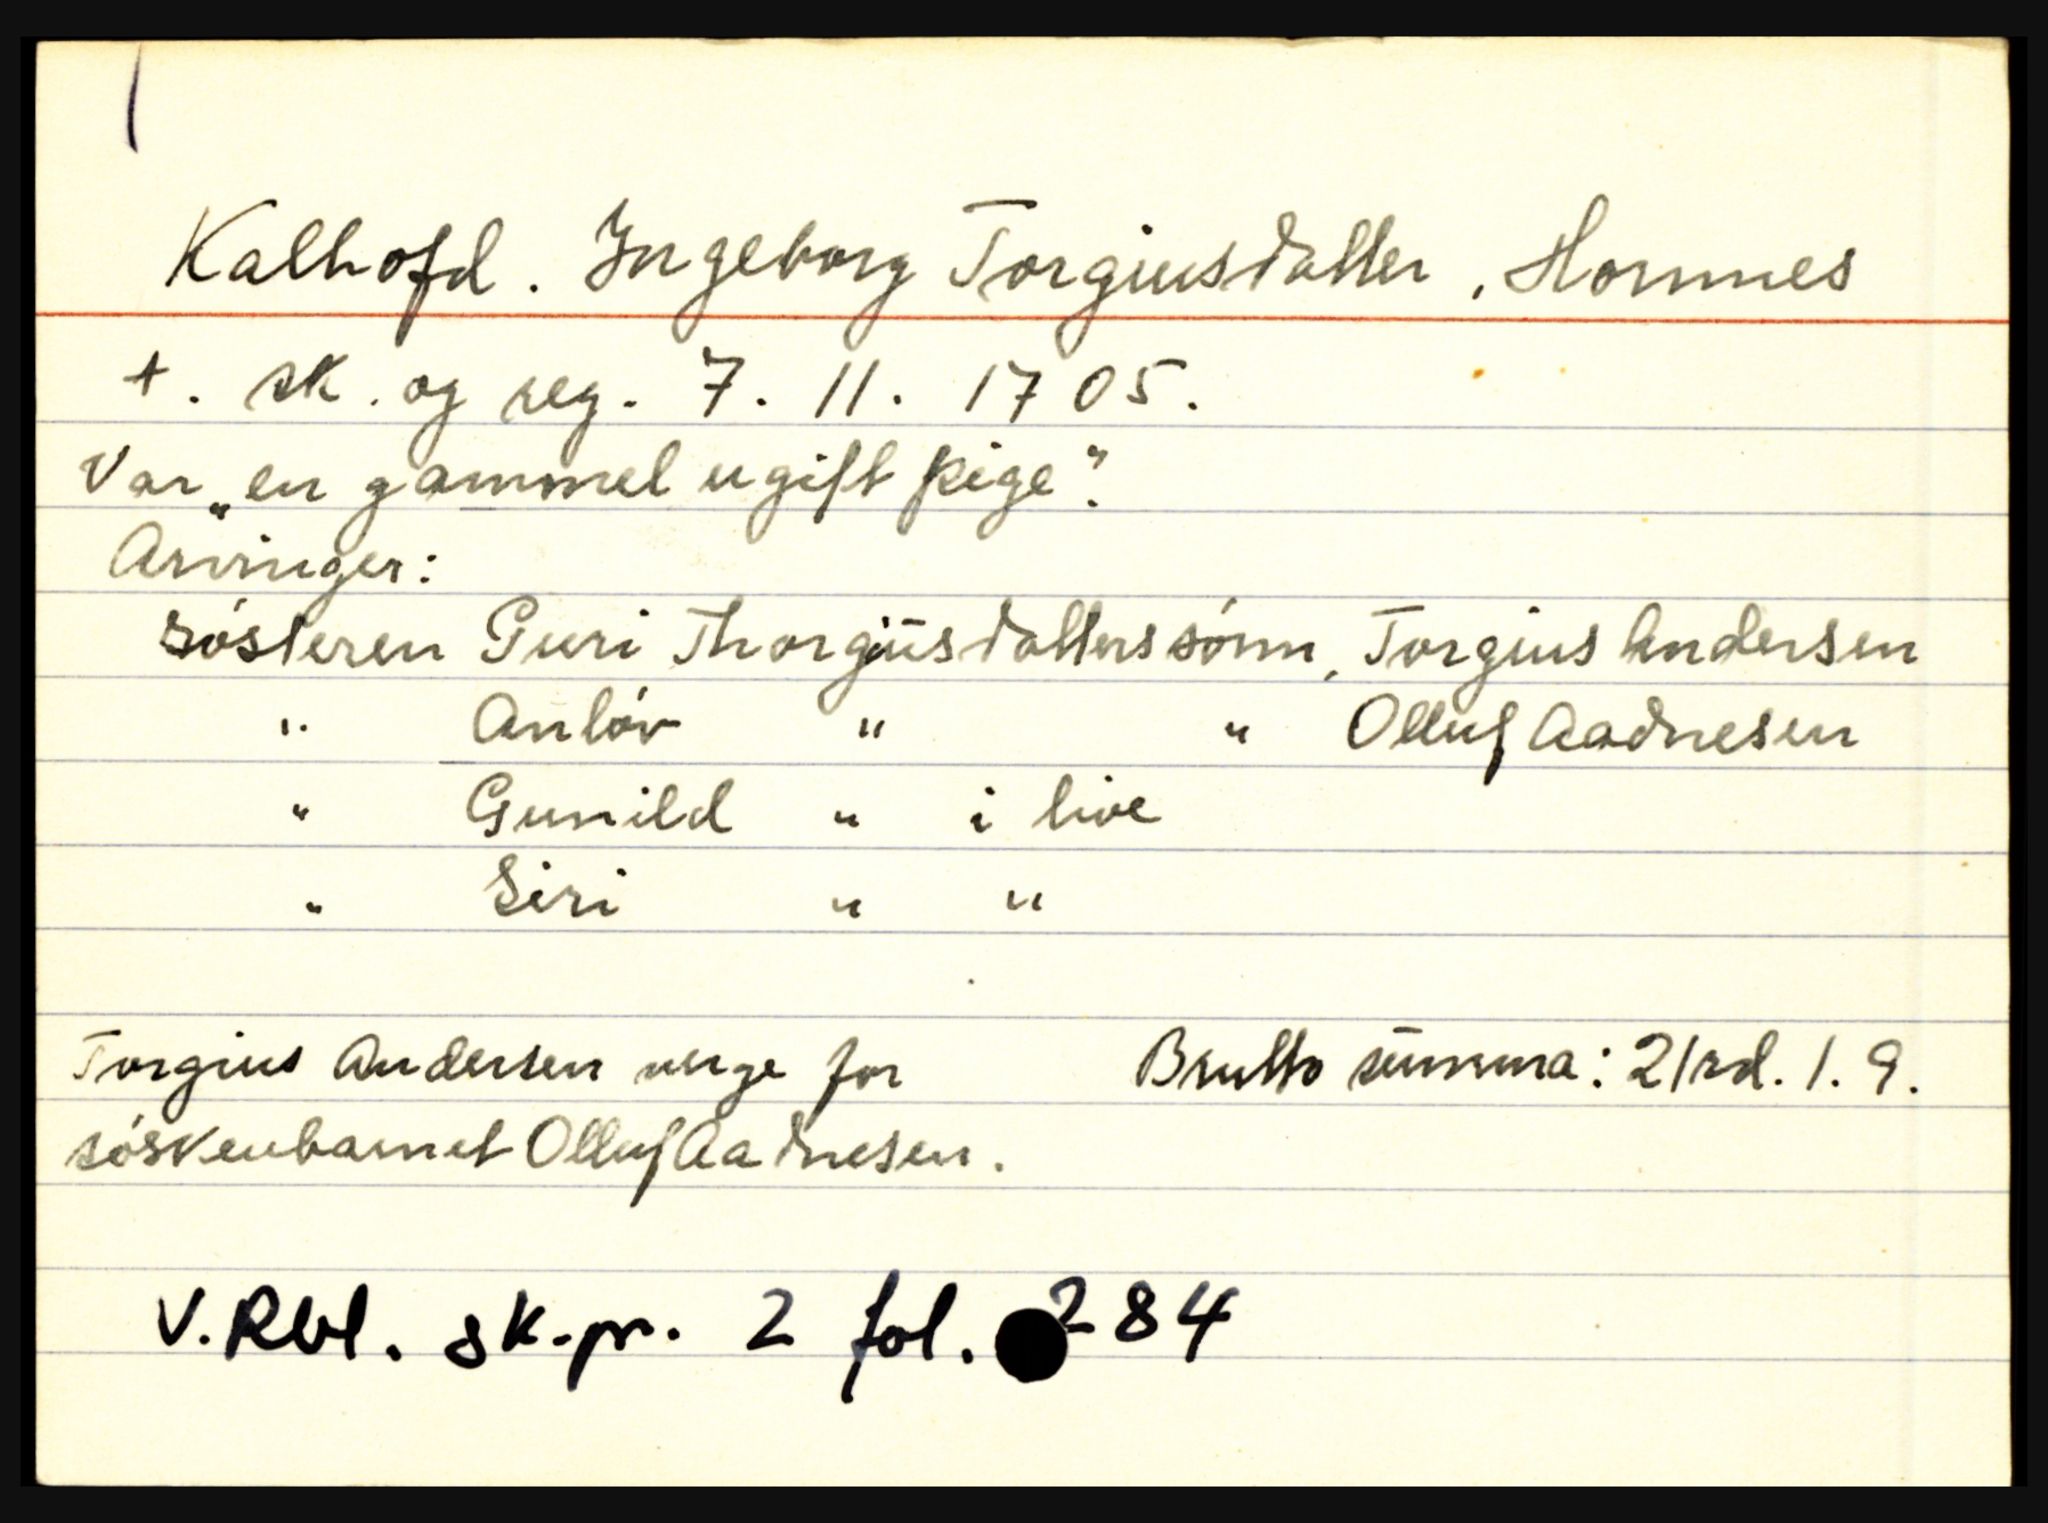 Kalhofd. Ingeborg Torgiusdatter, Hornnes
+. sk. og reg. 7. 11. 1705.
Var „en gammel ugift pige".
Arvinger:
sósteren Guri Thorgiusdatters sónn, Torgius Andersen
" Anlóv " " Olluf Aadnesen
" Gunild " i live
" Siri " "
Torgius Andersen verge for Brutto summa: 21rd. 1. 9.
sóskenbarnet Olluf Aadnesen.
V. Rbl. sk.pr. 2 fol. 284